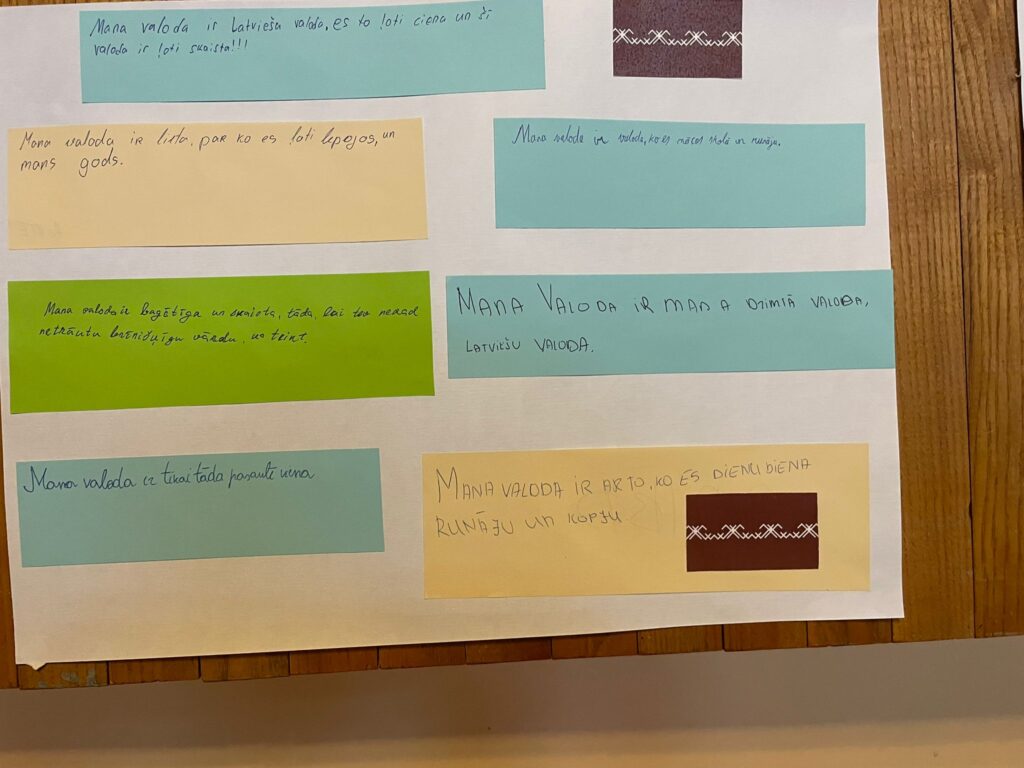 Mana valoda ir Latviešu valoda, es to ļoti cienu un šī
valoda ir ļoti skaista!!!
Mana valoda ir lieta, par ko es ļoti lepojos, un
mans gods.
Mana valoda ir valoda, ko es mācos skolā un runāju.
Mana valoda ir bagātīga un skaista, tāda, lai tev nekad
netrūktu brīnišķīgu vārdu, ko teikt.
MANA VALODA IR MANA DZIMTĀ VALODA,
LATVIEŠU VALODA.
Mana valoda ir tikai tāda pasaulē viena
MANA VALODA IR AR TO, KO ES DIENU DIENA
RUNĀJU UN KOPJU